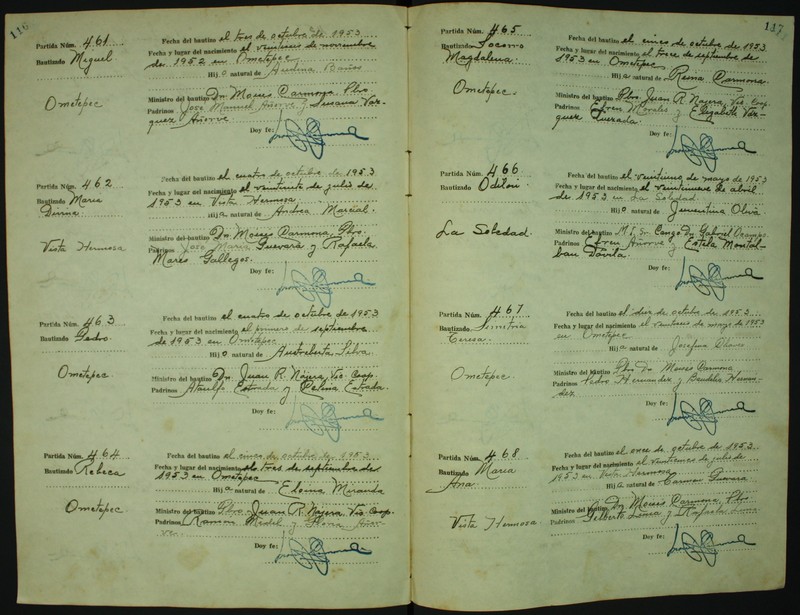 116
Partida Núm. 461
Bautizado Miguel
Ometepec
Fecha del bautizo el tres de octubre de 1953
Fecha y lugar del nacimiento el veintiseis de noviembre
de 1952 en Ometepec
Hijo natural de Baños
Ministro del bautizo Dn. Moises Carmona, Pbro.
Padrinos José Manuel Añorve y Susana Vaz-
quez Añorve
Doy fe:
Partida Núm. 462
Bautizado Maria
Vista Hermosa
Fecha del bautizo el cuatro de octubre de 1953
Fecha y lugar del nacimiento el veintisiete de julio de
1953 en Vista Hermosa
Hija natural de Andrea Marcial.
Ministro del bautizo Dn. Moises Carmona, Pbro.
Padrinos José Maria Guevara y Rafaela
Mares Gallegos.
Doy fe:
Partida Núm. 463
Bautizado Pedro
Ometepec.
Fecha del bautizo el cuatro de octubre de 1953
Fecha y lugar del nacimiento el primero de septiembre
de 1953 en Ometepec
Hijo natural de Austreberta Silva
Ministro del bautizo Dn. Juan R. Najera, Vic. Coop.
Padrinos Ataulfo Estrada y Celina Estrada.
Doy fe:
Partida Núm. 464
Bautizado Rebeca
Ometepec
Fecha del bautizo el cinco de octubre de 1953
Fecha y lugar del nacimiento el tres de septiembre de
1953 en Ometepec
Hija natural de Miranda
Ministro del bautizo Pbro. Juan R. Najera, Vic. Coop.
Padrinos Ramon y Gloria Añor-
ve.
Doy fe:
117
Partida Núm. 465
Bautizado Socorro
Magdalena
Ometepec.
Fecha del bautizo el cinco de octubre de 1953
Fecha y lugar del nacimiento el trece de septiembre de
1953 en Ometepec
Hija natural de Reina Carmona.
Ministro del bautizo Pbro. Juan R. Najera, Vic. Coop.
Padrinos Efren Morales y Elizabeth Vaz-
quez Quezada.
Doy fe:
Partida Núm. 466
Bautizado Odilon
La Soledad.
Fecha del bautizo el veintiuno de mayo de 1953
Fecha y lugar del nacimiento el veintinueve de abril
de 1953 en La Soledad
Hijo natural de Juventina Oliva
Ministro del bautizo M. I. Sr. Cango. Dn. Gabriel Ocampo
Padrinos Efren Añorve y Estela Montal-
ban Davila.
Doy fe:
Partida Núm. 467
Bautizado Demetria
Teresa.
Ometepec.
Fecha del bautizo el diez de octubre de 1953
Fecha y lugar del nacimiento el veintiseis de mayo de 1953
en Ometepec
Hija natural de Josefina
Ministro del bautizo Pbro. Dn. Moises Carmona
Padrinos Pedro Hernandez y Baudelia Hernan-
dez.
Doy fe:
Partida Núm. 468
Bautizado Maria
Ana
Vista Hermosa.
Fecha del bautizo el once de octubre de 1953
Fecha y lugar del nacimiento el de julio de
1953 en Vista Hermosa
Hija natural de Carmen Guevara
Ministro del bautizo Dn. Moises Carmona, Pbro.
Padrinos Gilberto y Rafaela
Doy fe: